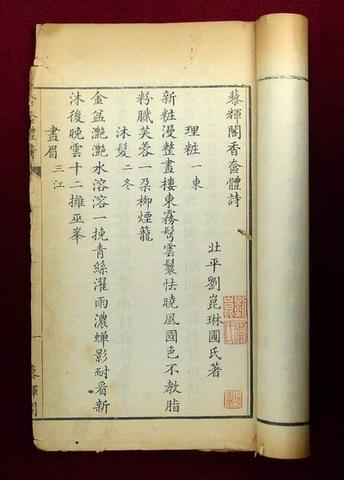 藜輝閣香奩體詩
壯平劉崑琳圃氏著
理粧 一東
新粧漫整畫樓東霧鬢雲鬟怯曉風國色不敎脂
粉膩芙蓉一朶栁煙籠
沐髮 二冬
金盆灔灔水溶溶一挽青絲濯雨濃蟬影耐看新
沐後晩雲十二擁巫峯
畫眉 三江